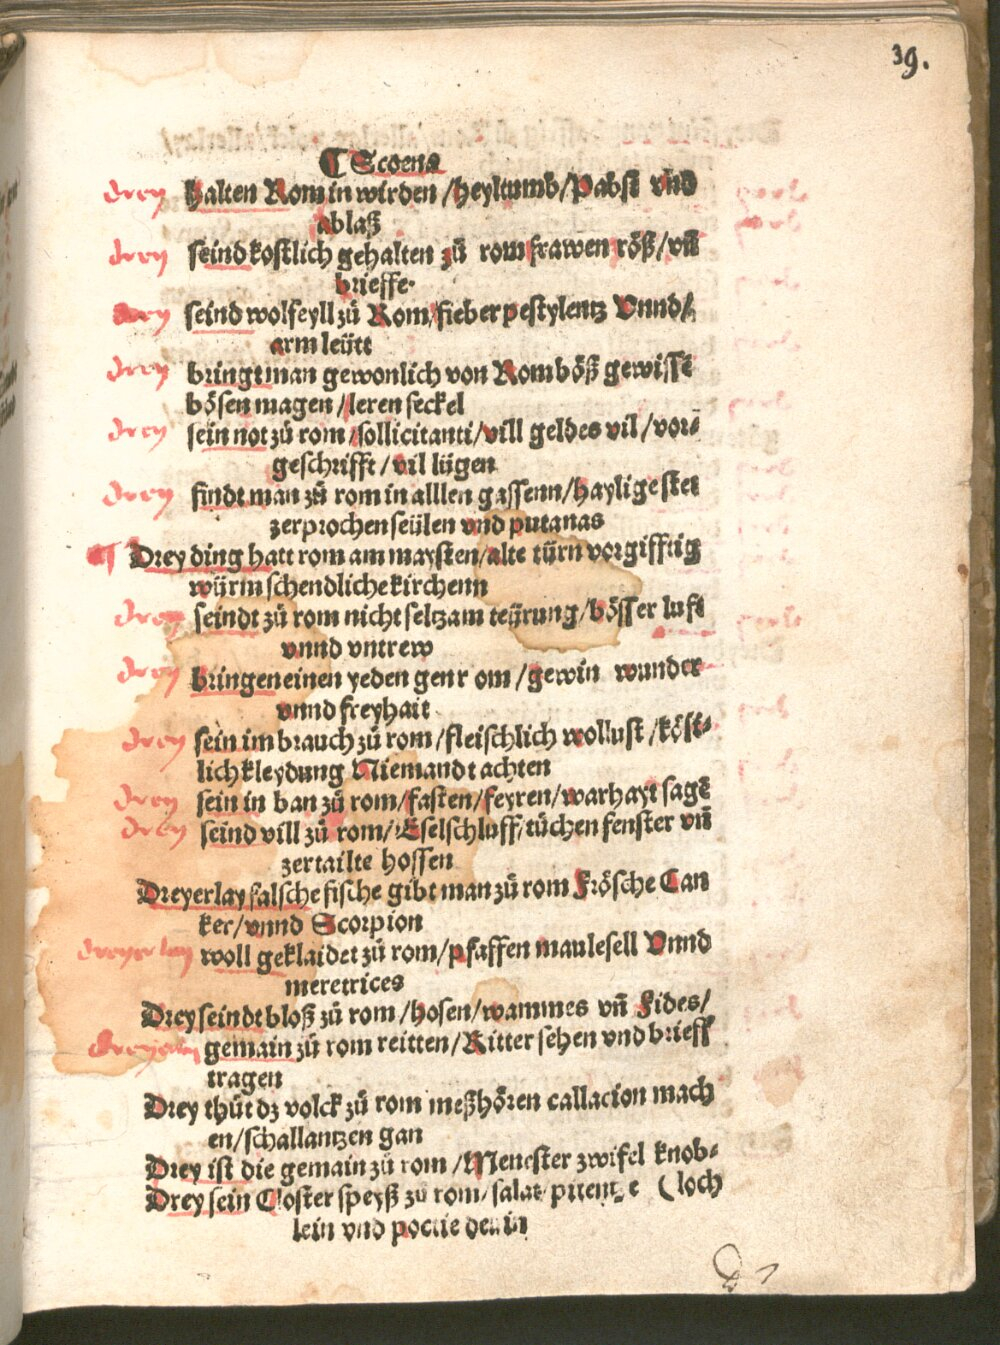 39.
¶ Scoena
drey halten Rom in wirden /heyltumb/Pabst vñd
ablaß
drey seind kostlich gehalten zů rom frawen röß/vñ
brieffe.
drey seind wolfeyll zů Rom/fieber pestylentz Vnnd/
arm leütt
drey bringt man gewonlich von Rom böß gewisse
bösen magen /leren seckel
drey sein not zů rom /sollicitanti/vill geldes vil /vor⸗
geschrifft / vil lügen
drey findt man zů rom in alllen gassenn/haylige stet
zerprochen seülen vnd putanas
¶ Drey ding hatt rom am maysten/alte türn vorgifftig
würm schendliche kirchenn
drey seindt zů rom nicht seltzam teÿrung/bösser luft
vnnd vntrew
drey bringen einen yeden gen r om /gewin wunder
vnnd freyhait
drey sein im brauch zů rom /fleischlich wollust /köst⸗
lich kleydung Niemandt achten
drey sein in ban zů rom/fasten/feyren/warhayt sagē
drey seind vill zů rom/Eselschluff/tüchen fenster vñ
zertailte hossen
Dreyerlay falsche fische gibt man zů rom Frösche Can
ker/vnnd Scorpion
dreyerlay woll geklaidet zů rom/pfaffen maulesell Vnnd
meretrices
Drey seindt bloß zů rom /hosen/wammes vñ Fides/
dreyerlay gemain zů rom reitten/Ritter sehen vnd brieff
tragen
Drey thüt dz volck zů rom meßhören callacion mach
en/schallantzen gan
Drey ist die gemain zů rom /Menester zwifel knob⸗
Drey sein Closter speyß zů rom/salat ( loch
lein vnd